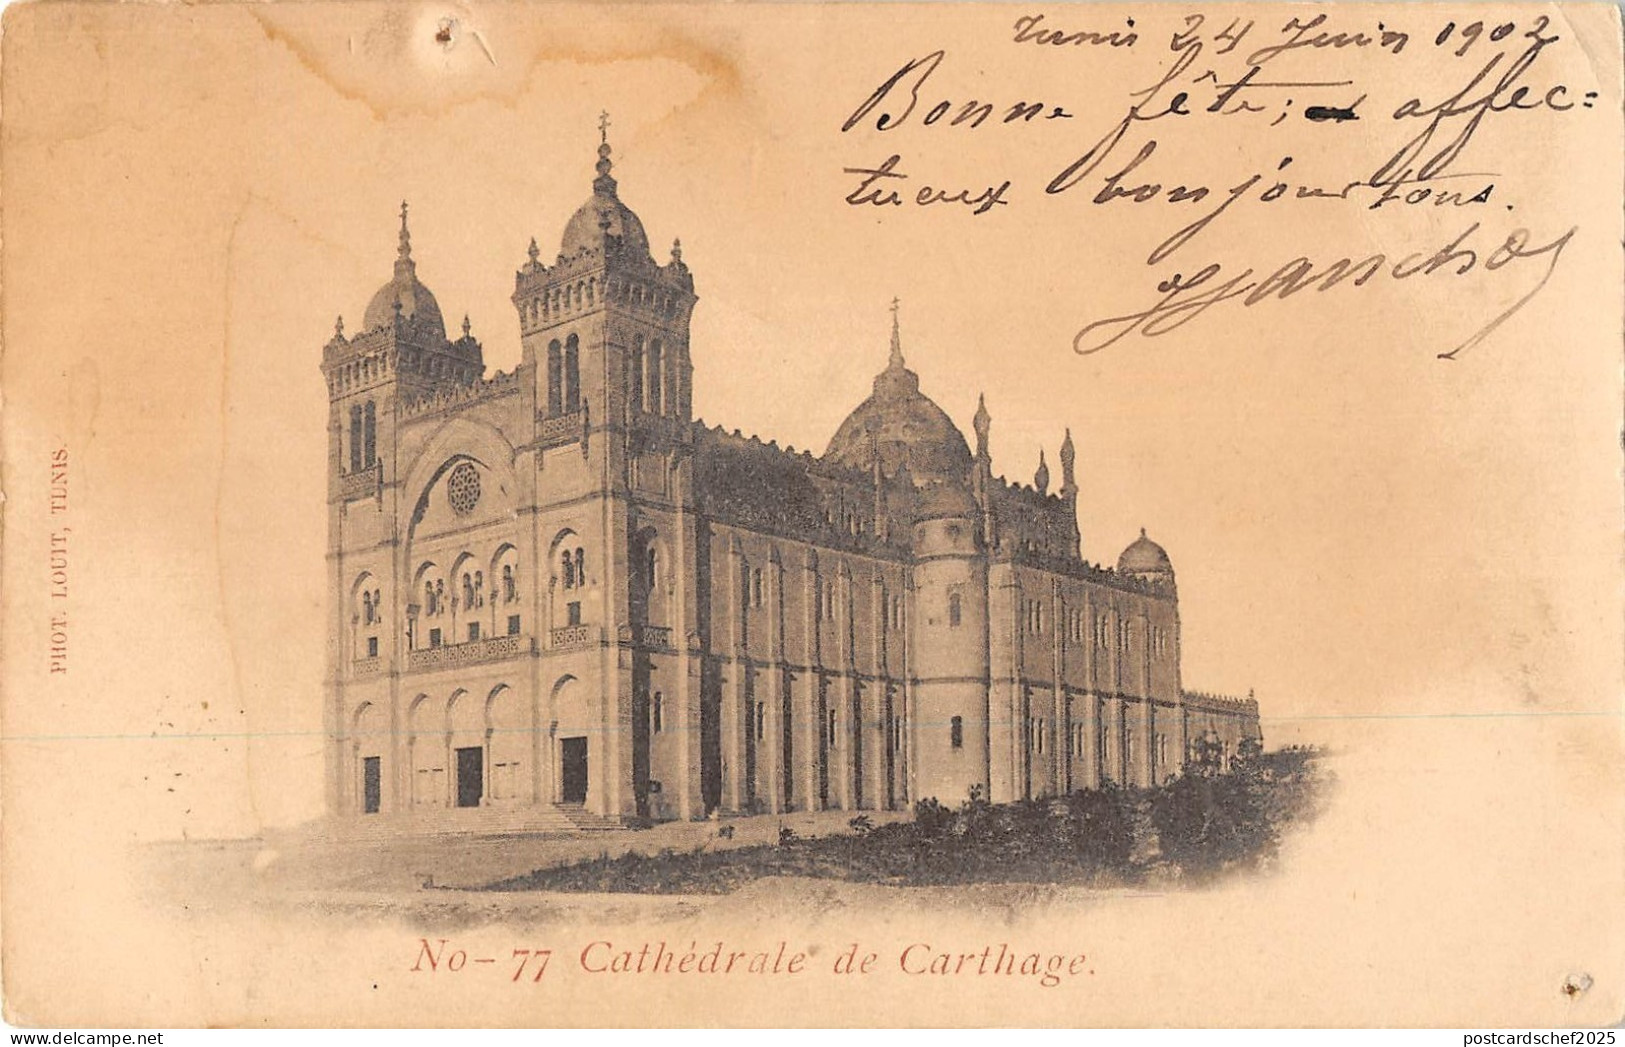 Tunis 24 Juin 1902
Bonne fête; affec=
tueux bonjour tous.
PHOT. LOUIT, TUNIS.
No- 77 Cathédrale de Carthage.
delcampe.net
postcardschef2025